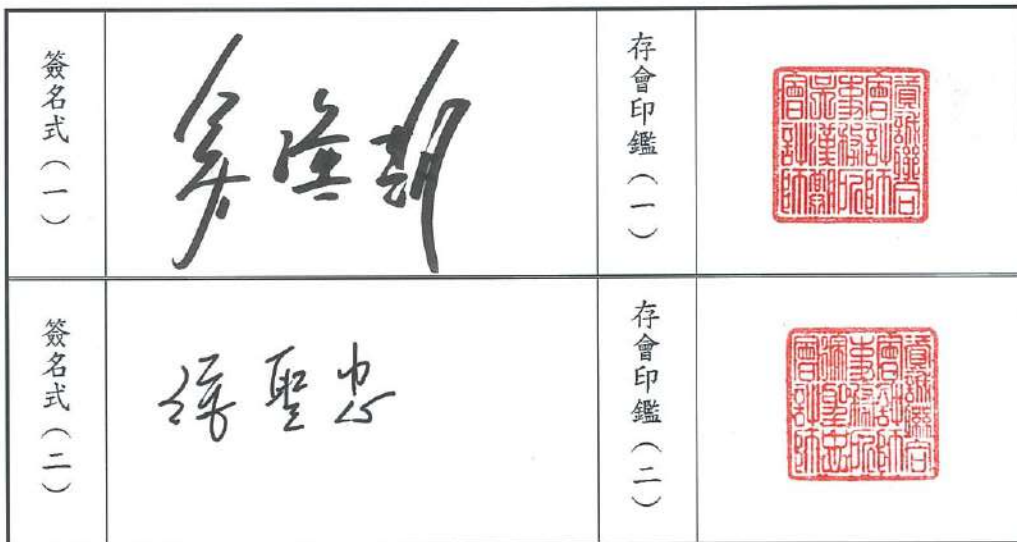 簽名式(一)
吳漢期
存會印鑑(一)
資誠聯合
會計師
事務所
吳漢期
會計師
簽名式(二)
徐聖忠
存會印鑑(二)
資誠聯合
會計師
事務所
徐聖忠
會計師